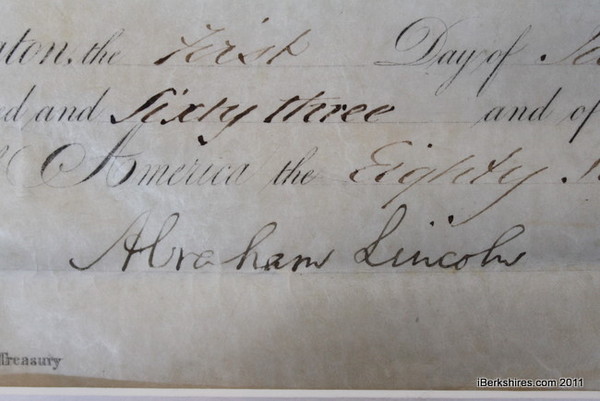 the First Day of
and Sixty three and of
America the Eighty
Abraham Lincoln
Treasury
iBerkshires.com 2011